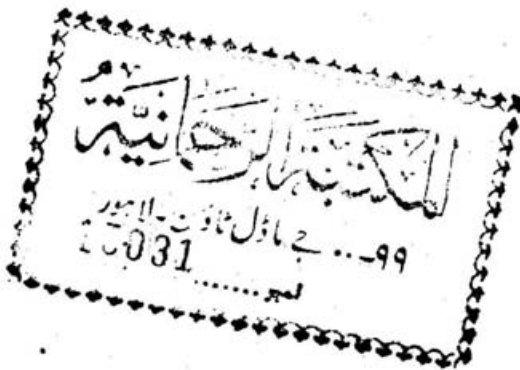 المكتبة الرحمانية
۹۹... جے ماڈل ٹاؤن۔ لاہور
نمبر......031